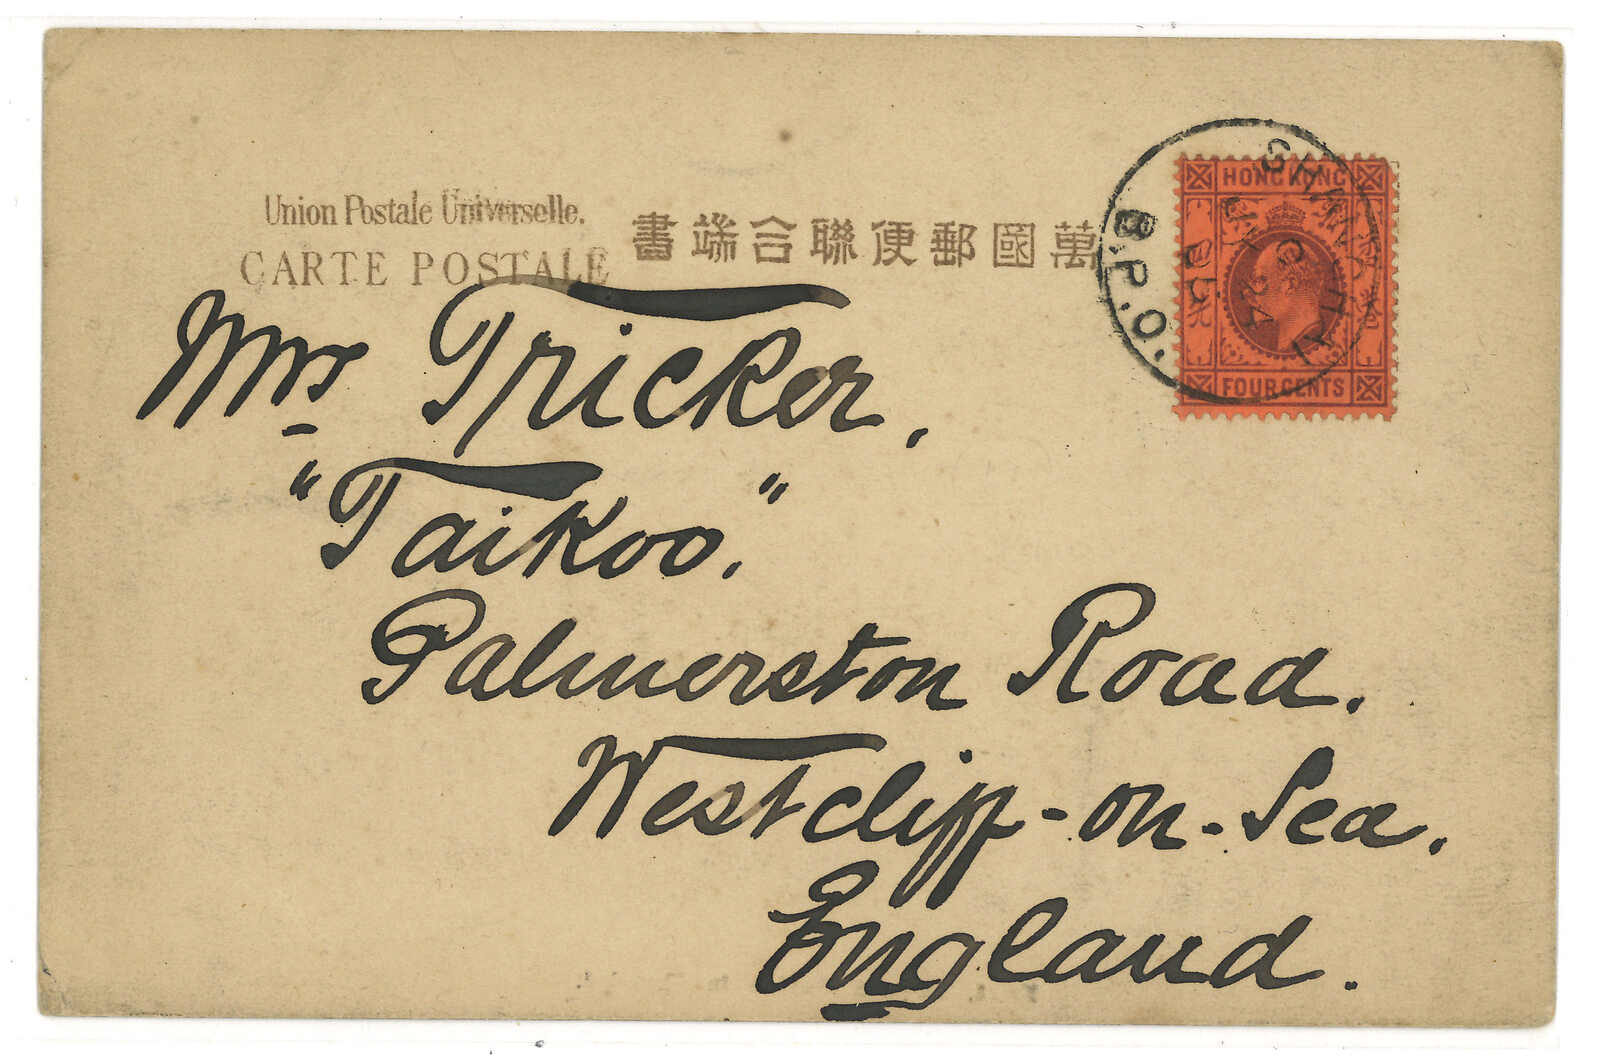 Union Postale Universelle.
CARTE POSTALE
萬國郵便聯合端書
HONG KONG
FOUR CENTS
SHANGHAI
C
JY 24
05
B.P.O.
Mrs Tricker,
"Taikoo."
Palmerston Road.
Westcliff-on-Sea.
England.